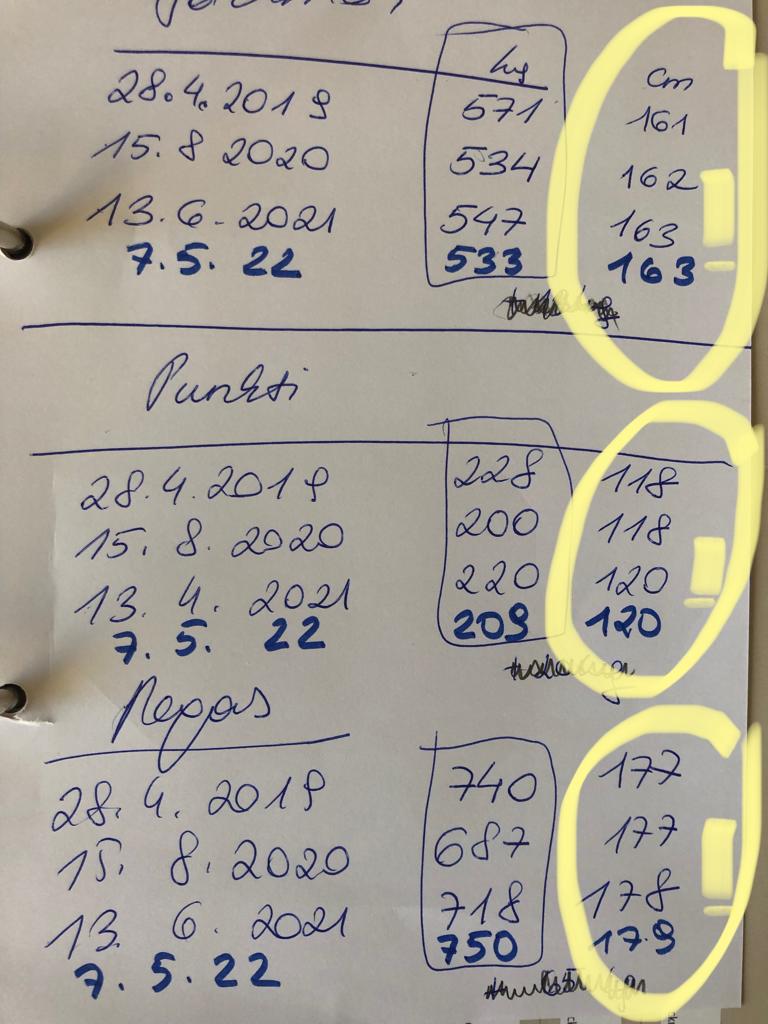 kg cm
28.4.2019 571 161
15.8 2020 534 162
13.6-2021 547 163
7.5.22 533 163
Punkti
28.4.2019 228 118
15.8.2020 200 118
13.4.2021 220 120
7.5.22 209 120
Pegas
28.4.2019 740 177
15.8.2020 687 177
13.6.2021 718 178
7.5.22 750 179